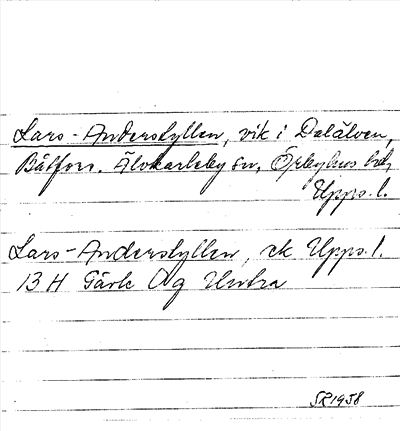 Lars-Anderskyllen, vik i Dalälven,
Båtfors. Älvkarleby sn, Örbyhus hd,
Upps. l.
Lars-Anderskyllen, ek Upps. l.
13 H Gävle Og Untra
SR 1958